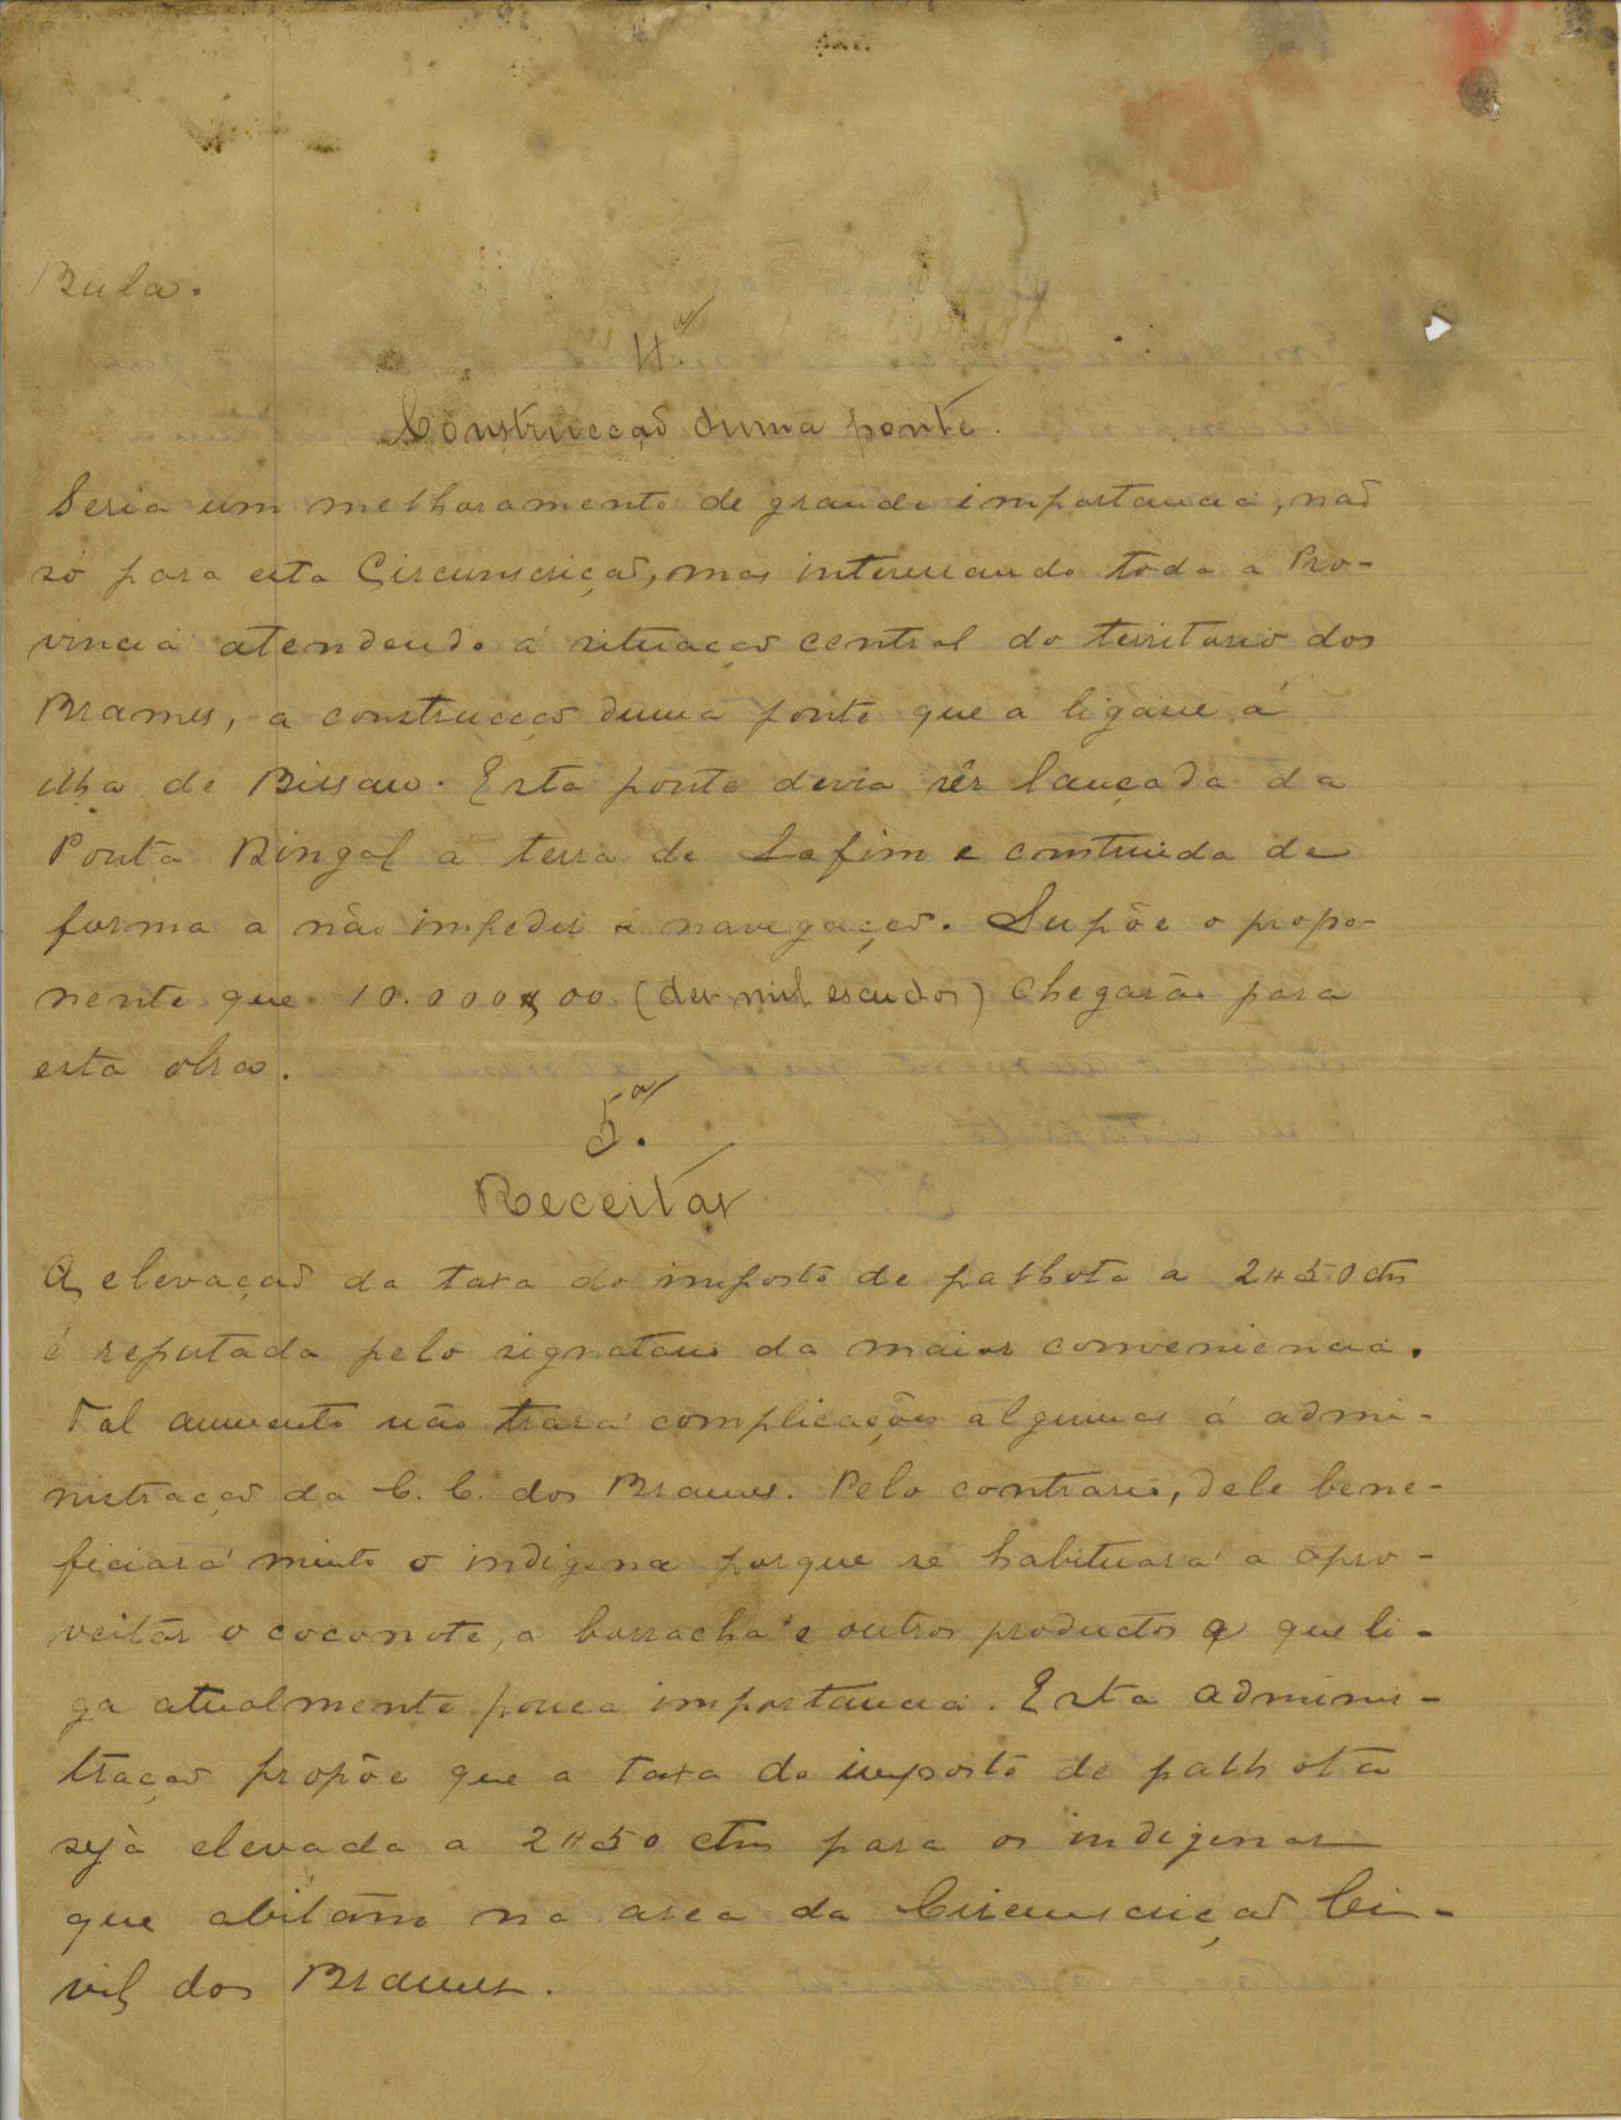 Bula.
4.ª
Construcção duma ponte.
Seria um melhoramento de grande importancia, não
só para esta Circunscrição, mas interessando toda a Pro-
vincia atendendo á situação central do territorio dos
Brames, a construcção duma ponte que a ligasse á
ilha de Bissau. Esta ponte devia sêr lançada da
Ponta Bingal a terra de Safim e construida de
forma a não impedir a navegação. Supõe o propo-
nente que 10.000$00 (dez mil escudos) chegarão para
esta obra.
5.ª
Receitas
A elevação da taxa do imposto de palhota a 2$50 ctvs
é reputada pelo signatario da maior conveniencia.
Tal aumento não trará complicações algumas á admi-
nistração da C. C. dos Brames. Pelo contrario, dele bene-
ficiará muito o indigena porque se habituará a apro-
veitar o coconote, a borracha e outros productos a que li-
ga atualmente pouca importancia. Esta adminis-
tração propõe que a taxa do imposto de palhota
sejà elevada a 2$50 ctvs para os indigenas
que abitam na area da Circunscrição Ci-
vil dos Brames.